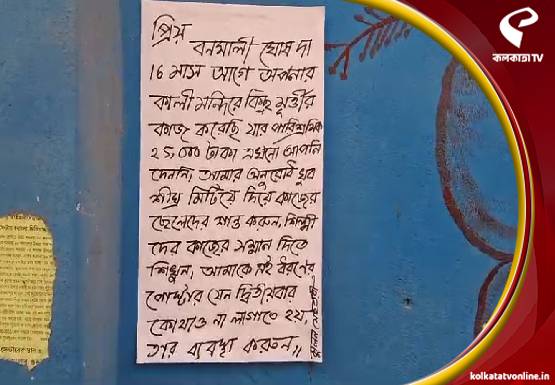 প্রিয়
বনমালী ঘোষ দা
16 মাস আগে আপনার
কালী মন্দিরে কিছু মূর্তীর
কাজ করেছি যার পারিশ্রমিক
২৫,০০০ টাকা এখনো আপনি
দেননি, আমার অনুরোধ খুব
শীঘ্র মিটিয়ে দিয়ে কাজের
ছেলেদের শান্ত করুন, শিল্পী
দের কাজের সম্মান দিতে
শিখুন, আমাকে এই ধরনের
পোস্টার যেন দ্বিতীয়বার
কোথাও না লাগাতে হয়,
তার ব্যবস্থা করুন,,
কলকাতা TV
kolkatatvonline.in